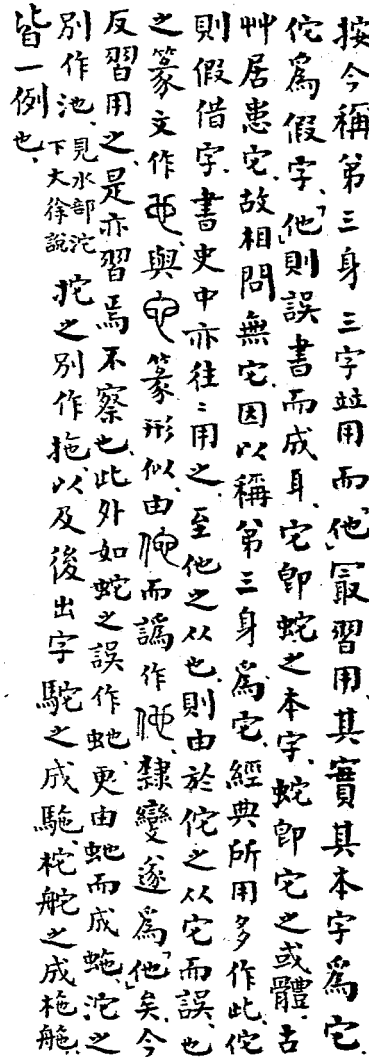 按今稱第三身三字竝用而「他」冣習用、其實其本字爲它、
佗爲假字、「他」則誤書而成耳、它卽蛇之本字、蛇卽它之或體、古
艸居患它、故相問無它、因以稱第三身爲它、經典所用多作此、佗
則假借字、書史中亦往〻用之、至他之从也、則由於佗之从它而誤、也
之篆文作、與篆形似、由而譌作、隸變遂爲「他」矣、今
反習用之、是亦習焉不察也、此外如蛇之誤作虵、更由虵而成𧉮、沱之
別作池、見水部沱下大徐說拕之別作拖、以及後出字駝之成駞、柁舵之成杝舥、
皆一例也、